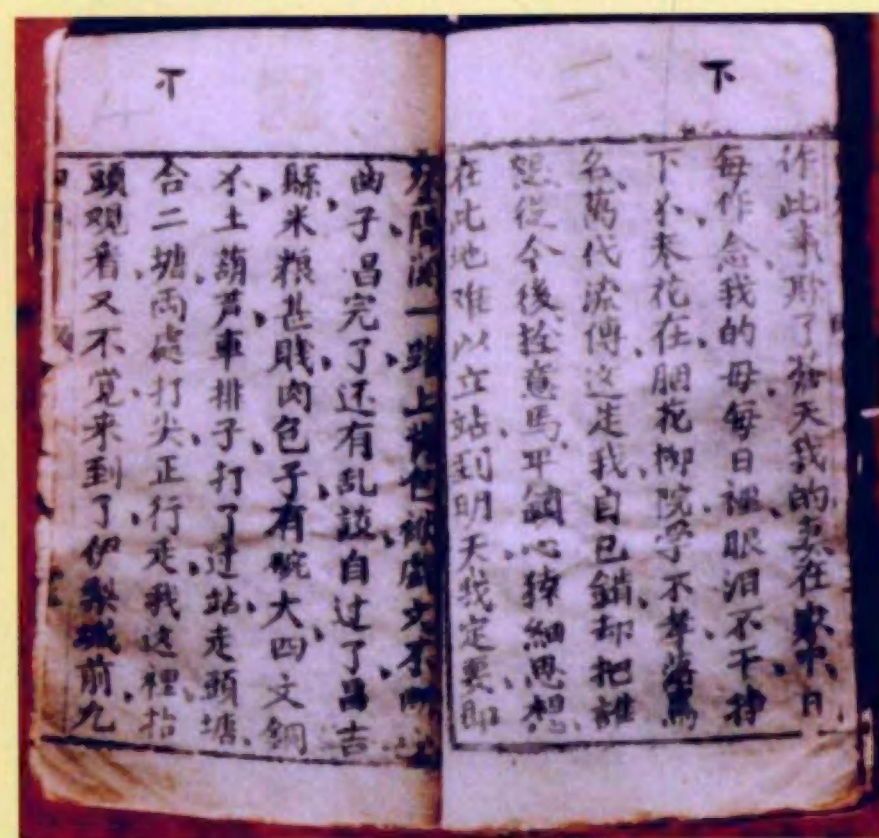 下
作此事欺了蒼天我的妻在家中日
每作念我的母每日裡眼泪不干撇
下不奉花在胭花柳院學不孝落罵
名萬代流傳这是我自已錯却把誰
想從今後拴意馬牢鎖心猿細思想
在此地难以立站到明天我定要即
下
一路上背包戲文不断
曲子昌完了还有乱談自过了昌吉
縣米粮甚賤肉包子有碗大四文銅
不土葫芦車排子打了过站走頭塘
合二塘両處打尖正行走我这裡抬
頭观看又不觉来到了伊梨城前九